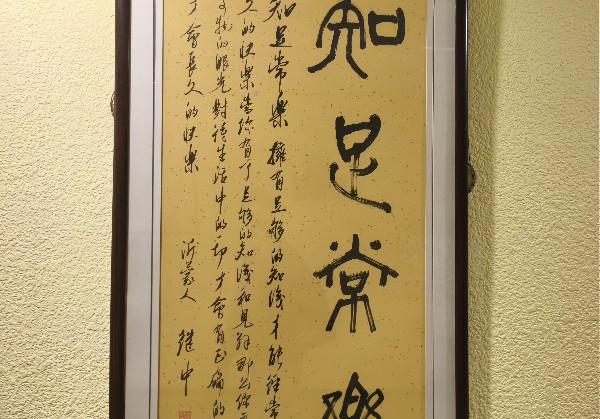 知足常樂
知足常樂 擁有足够的知識才能經常
久的快樂 當你有了足够的知識和見解 那么你
的眼光對待生活中的一切 才會有正确的
會長久的快樂
沂蒙人 继中